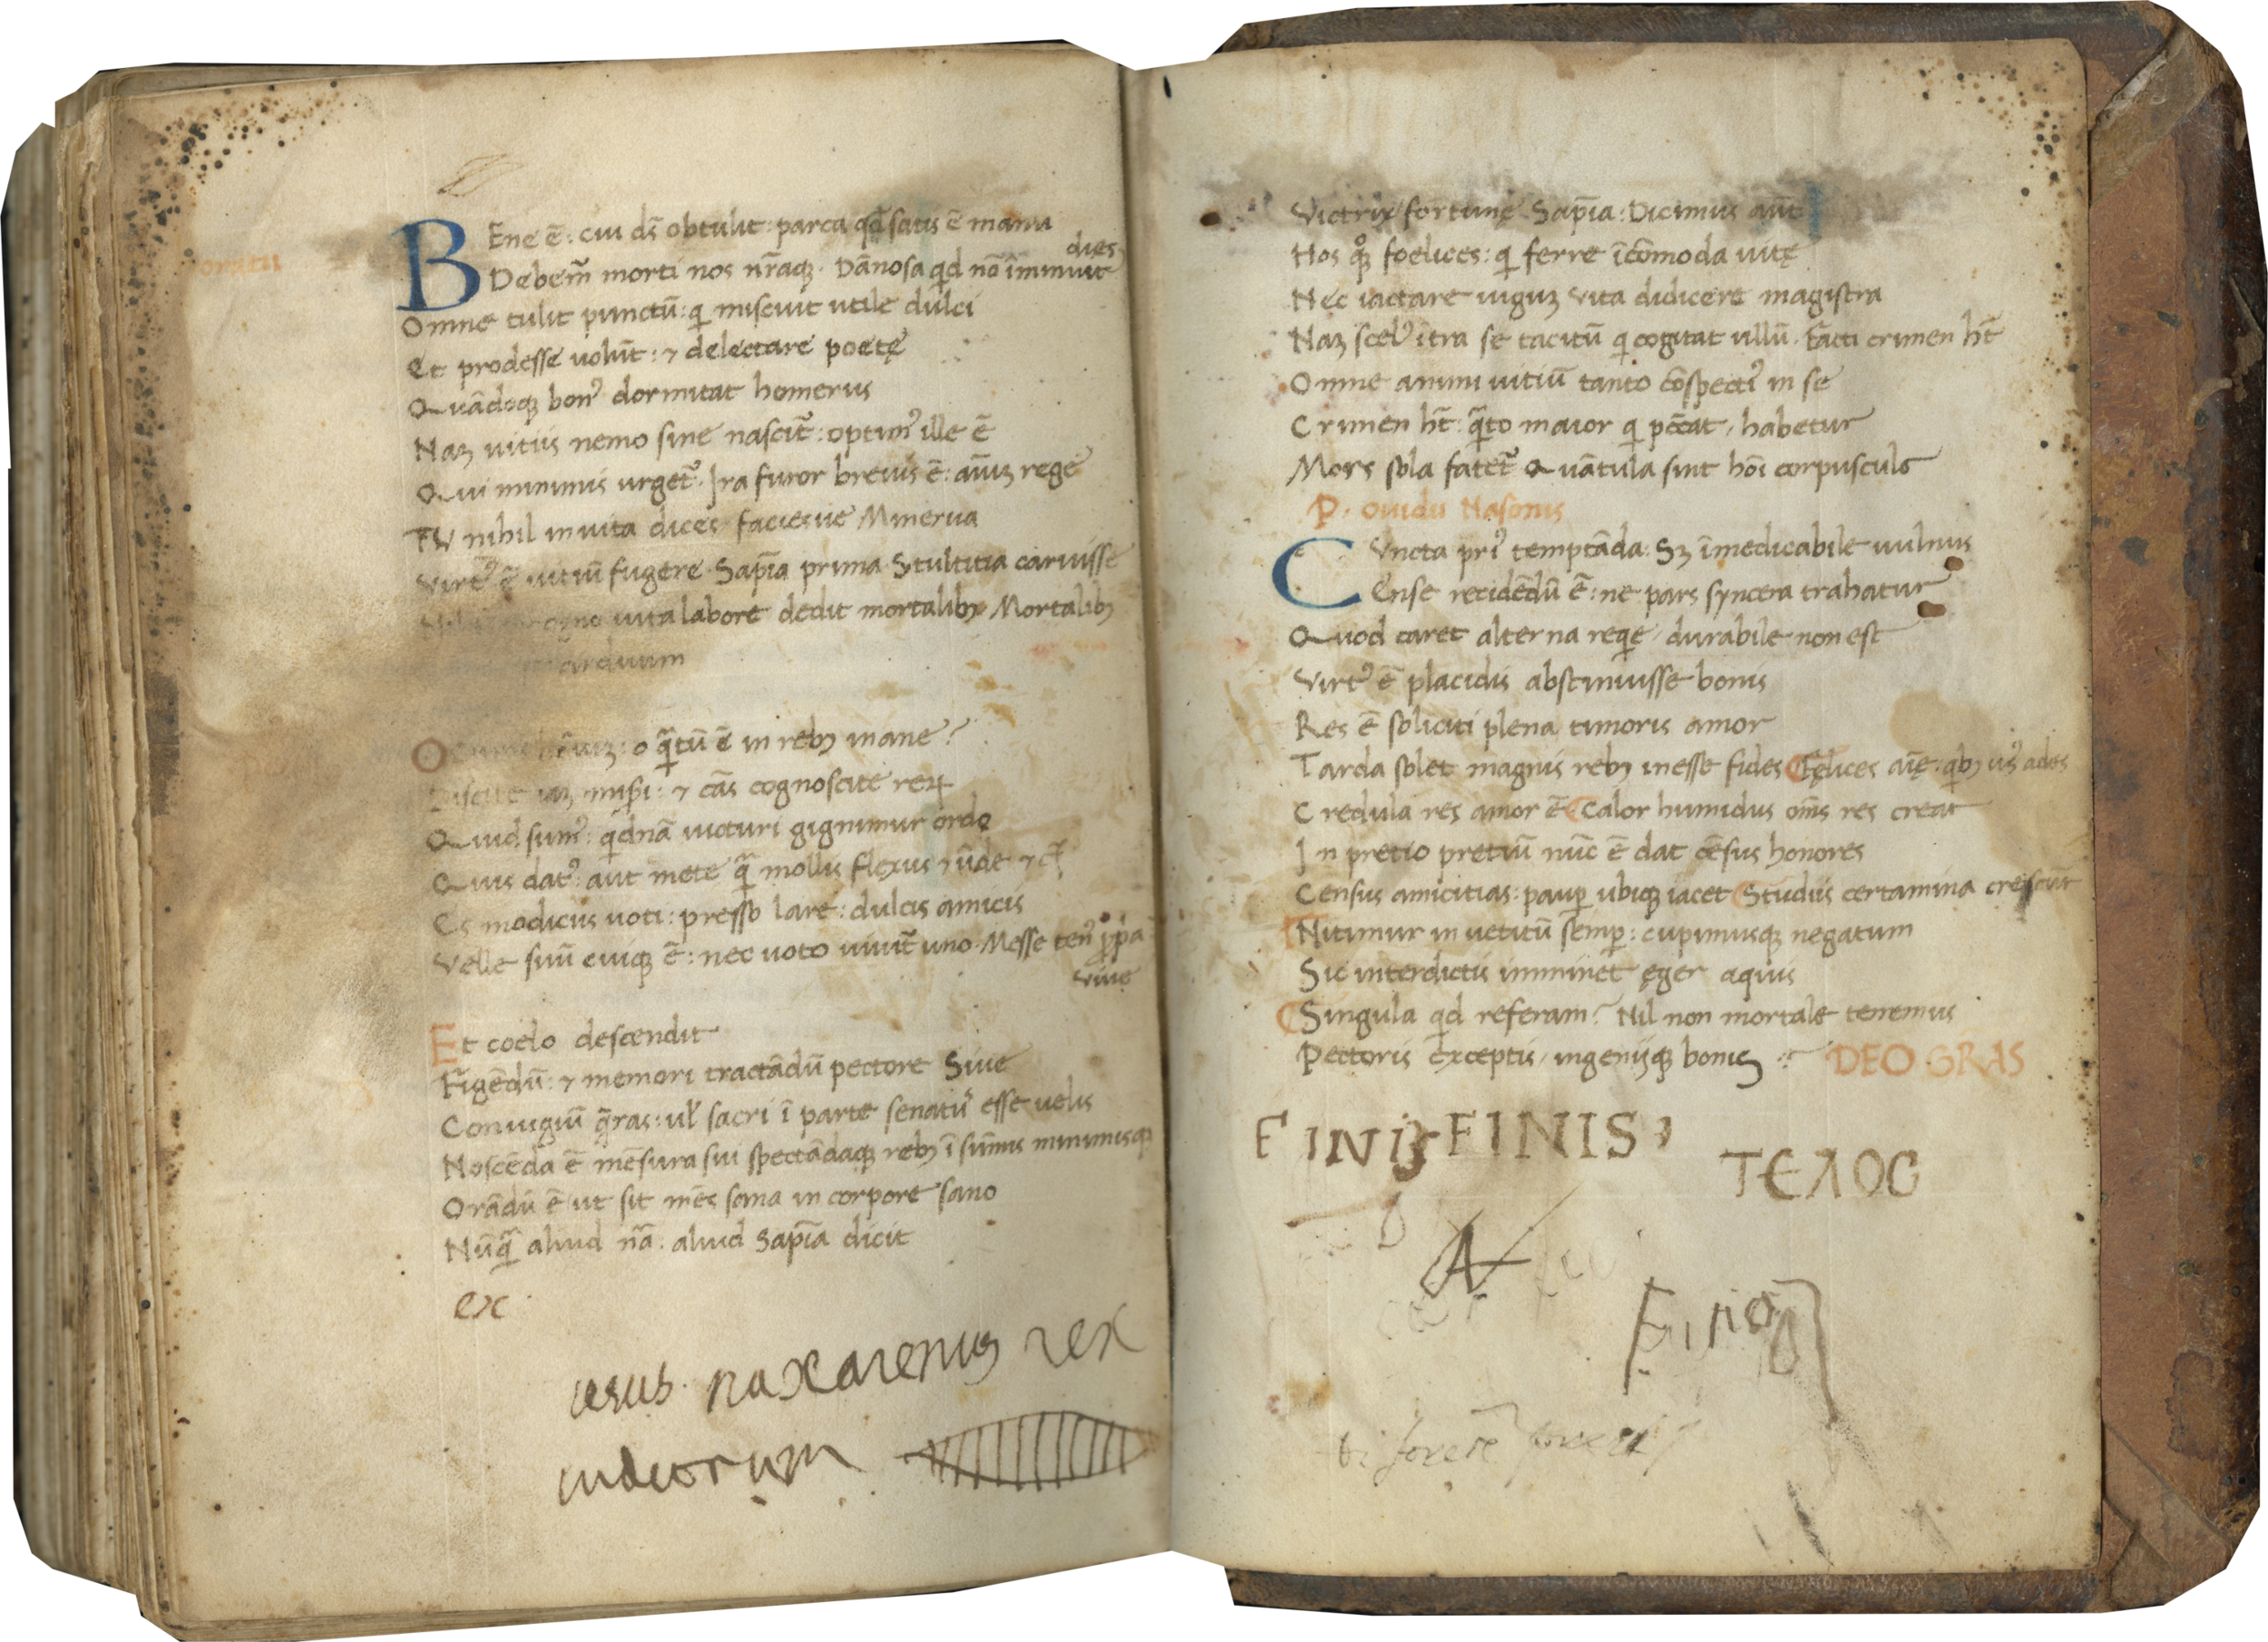 BEne ē: cui ds̄ obtulit: parca qd̄ satis ē manu
dies
Debem᷒ morti nos nr̄aq;. Dānosa qid nō īminuit
Omne tulit punctū: qi miscuit utile dulci
Et prodesse uolūt: ⁊ delectare poetę
Quādoq; bon᷒ dormitat homerus
Naz uitiis nemo sine nascit᷑: optim᷒ ille ē
Qui minimis urget᷑. Ira furor breuis ē: aīuz rege
TU nihil inuita dices faciesue Minerua
Virt᷒ ē uitiū fugere. Sapīa prima Stultitia caruisse
uita labore dedit mortalib; Mortalib;
arduum
O : o qātū ē in reb; inane?
Discite iaz mis̄i: ⁊ cās cognoscite reꝝ
Quid sum᷒: qidnā uicturi gignimur ordo
Quis dat᷒: aut mete qā mollis flexus ⁊ ūde ⁊ c̄
Es modicus uoti: presso lare: dulcis amicis
Velle suū cuiq; ē: nec uoto uiuit᷑ uno. Messe ten᷒ ꝓpa
viue
Et coelo descendit
Figēdū: ⁊ memori tractādū pectore Siue
Coniugiū q̄ras: ul̄ sacri ī parte senat᷒ esse uelis
Noscēda ē mēsura sui spectādaq; reb; ī sūmis minimisq;
Orādū ē ut sit mēs sana in corpore sano
Nūqā aliud nā. aliud Sapīa dicit
ex
iesus naxarenus rex
iudeorum
Victrix fortunę Sapīa: Dicimus aūt
Hos qoq; foelices: qi ferre īcōmoda uitę
Nec iactare iuguz vita didicere magistra
Naz scel᷒ ītra se tacitū qi cogitat ullū. Facti crimen ht̄
Omne animi uitiū tanto cōspecti᷒ in se
Crimen ht̄: qāto maior qi pc̄cat, habetur
Mors sola fatet᷑ Quātula sint hoī corpuscula
P. Ouidii Nasonis
CVncta pri᷒ temptāda: Sz īmedicabile uulnus
Ense recidēdū ē: ne pars syncera trahatur
Quod caret alterna reqie, durabile non est
Virt᷒ ē placidis abstinuisse bonis
Res ē soliciti plena timoris amor
Tarda solet magnis reb; inesse fides Fęlices aīę: qib; us᷒ ades
Credula res amor ē Calor humidus oms̄ res creat
In pretio pretiū nūc ē dat cēsus honores
Census amicitias: paup̱ ubiq; iacet Studiis certamina crescūt
Nitimur in uetitū semp̱: cupimusq; negatum
Sic interdictis imminet ęger aquis
Singula qid referam? Nil non mortale tenemus
Pectoris exceptis, ingeniiq; bonis DEO GRAS
FINIS FINIS
ΤΕΛΟC
A
Finis